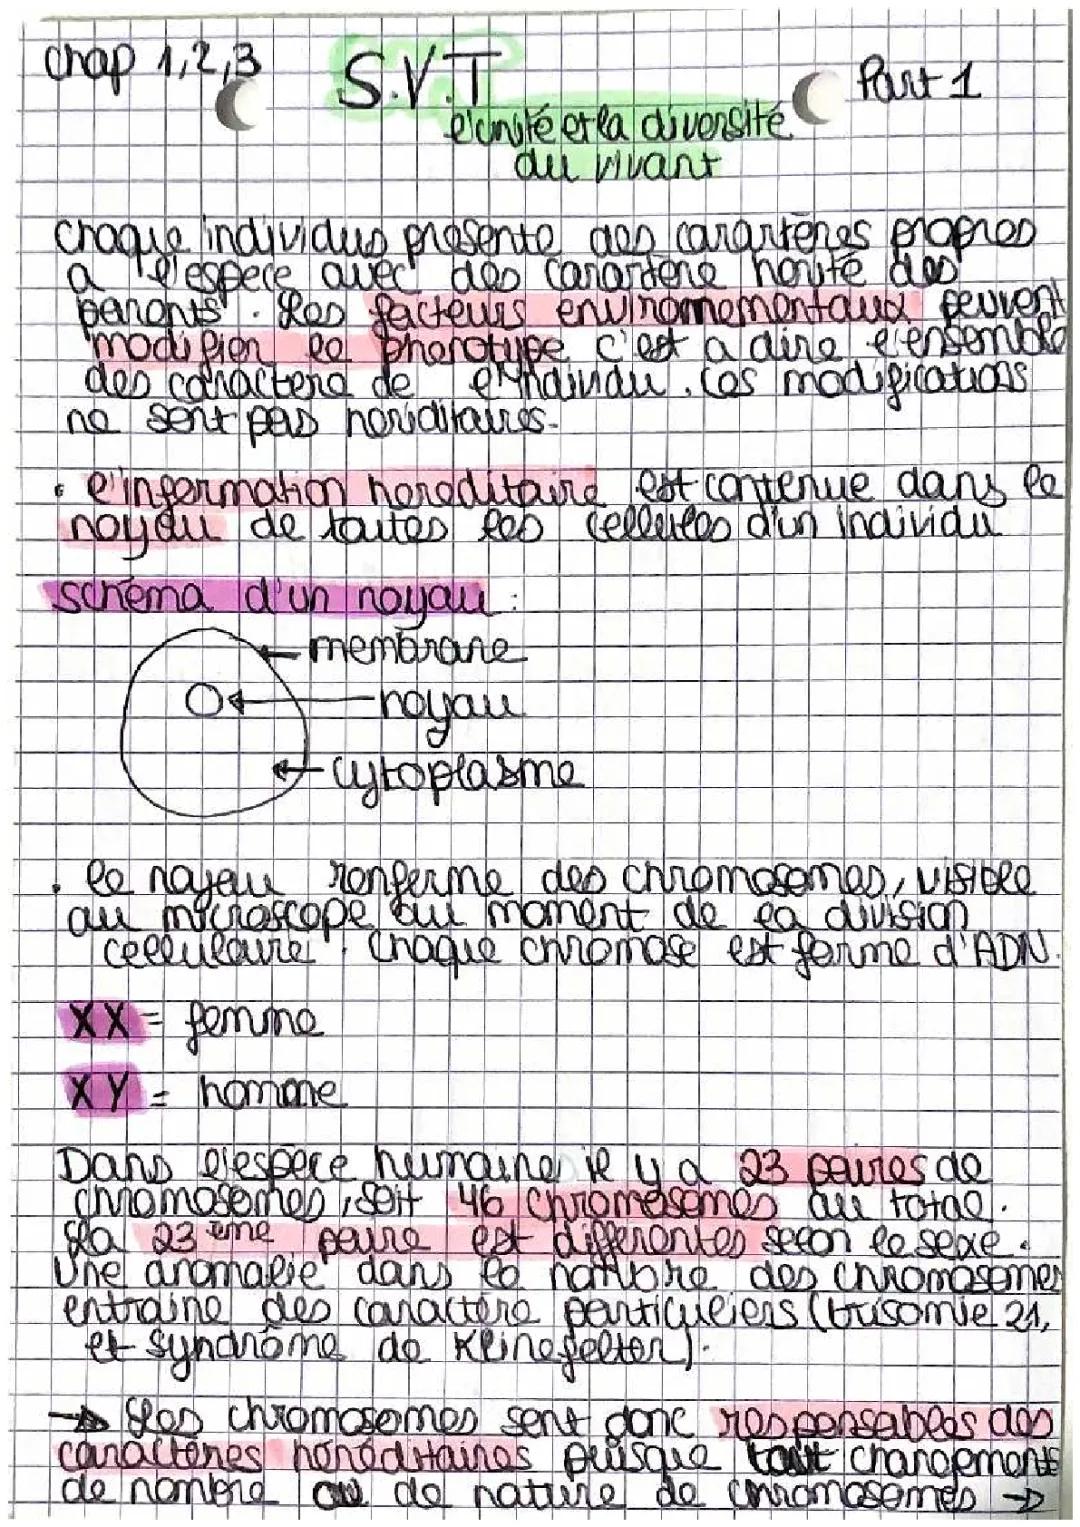 chap 1,2,3
S.V.T
Part 1
l'unité et la diversité
du vivant
chaque individus présente des caractères propres
a l'espece avec des caractère hérité des
parents. Les facteurs environnementaux peuvent
modifier le phenotype c'est a dire l'ensemble
des caractere de l'individu. Ces modifications
ne sont pas heriditaires.
. l'information hereditaire est contenue dans le
noyau de toutes les cellules d'un individu
schéma d'un noyau :
membrane
noyau
cytoplasme
. le noyau renferme des chromosomes, visible
au microscope au moment de la division
cellulaire. Chaque chromose est forme d'ADN.
XX = femme
XY = homme
Dans l'espèce humaine il y a 23 paires de
chromosomes, soit 46 chromosomes au total.
La 23 eme paire est differentes selon le sexe.
Une anomalie dans le nombre des chromosomes
entraine des caractère particuliers (trisomie 21,
et syndrôme de Klinefelter).
→ Les chromosomes sont donc responsables des
caractères héréditaires puisque tout changements
de nombre ou de nature de chromosomes →